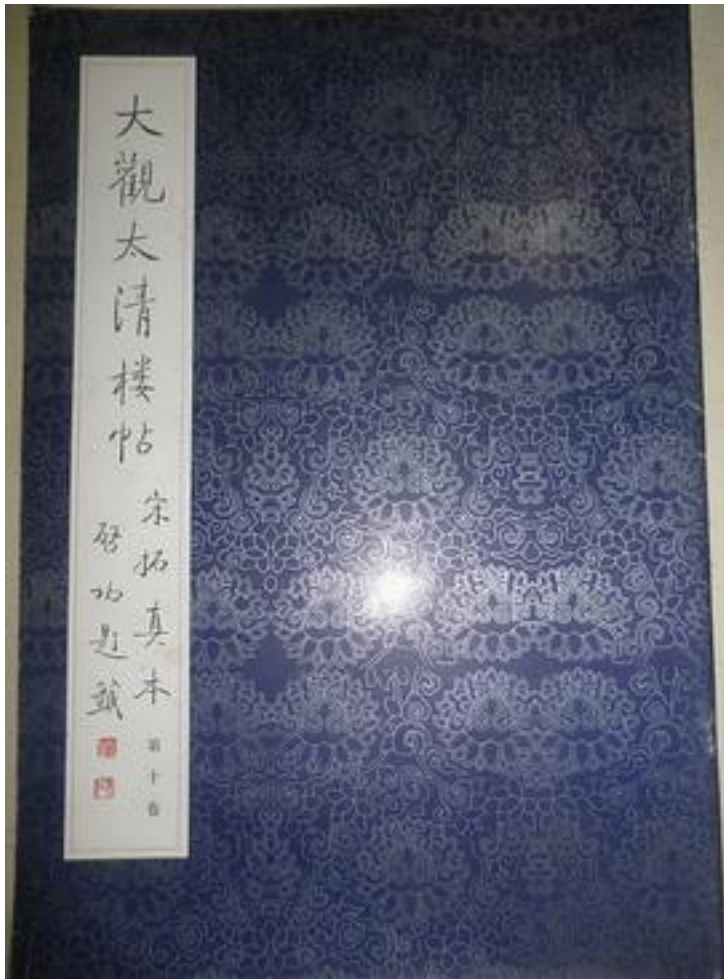 大觀太清楼帖
宋拓真本
第十卷
啓功題籤